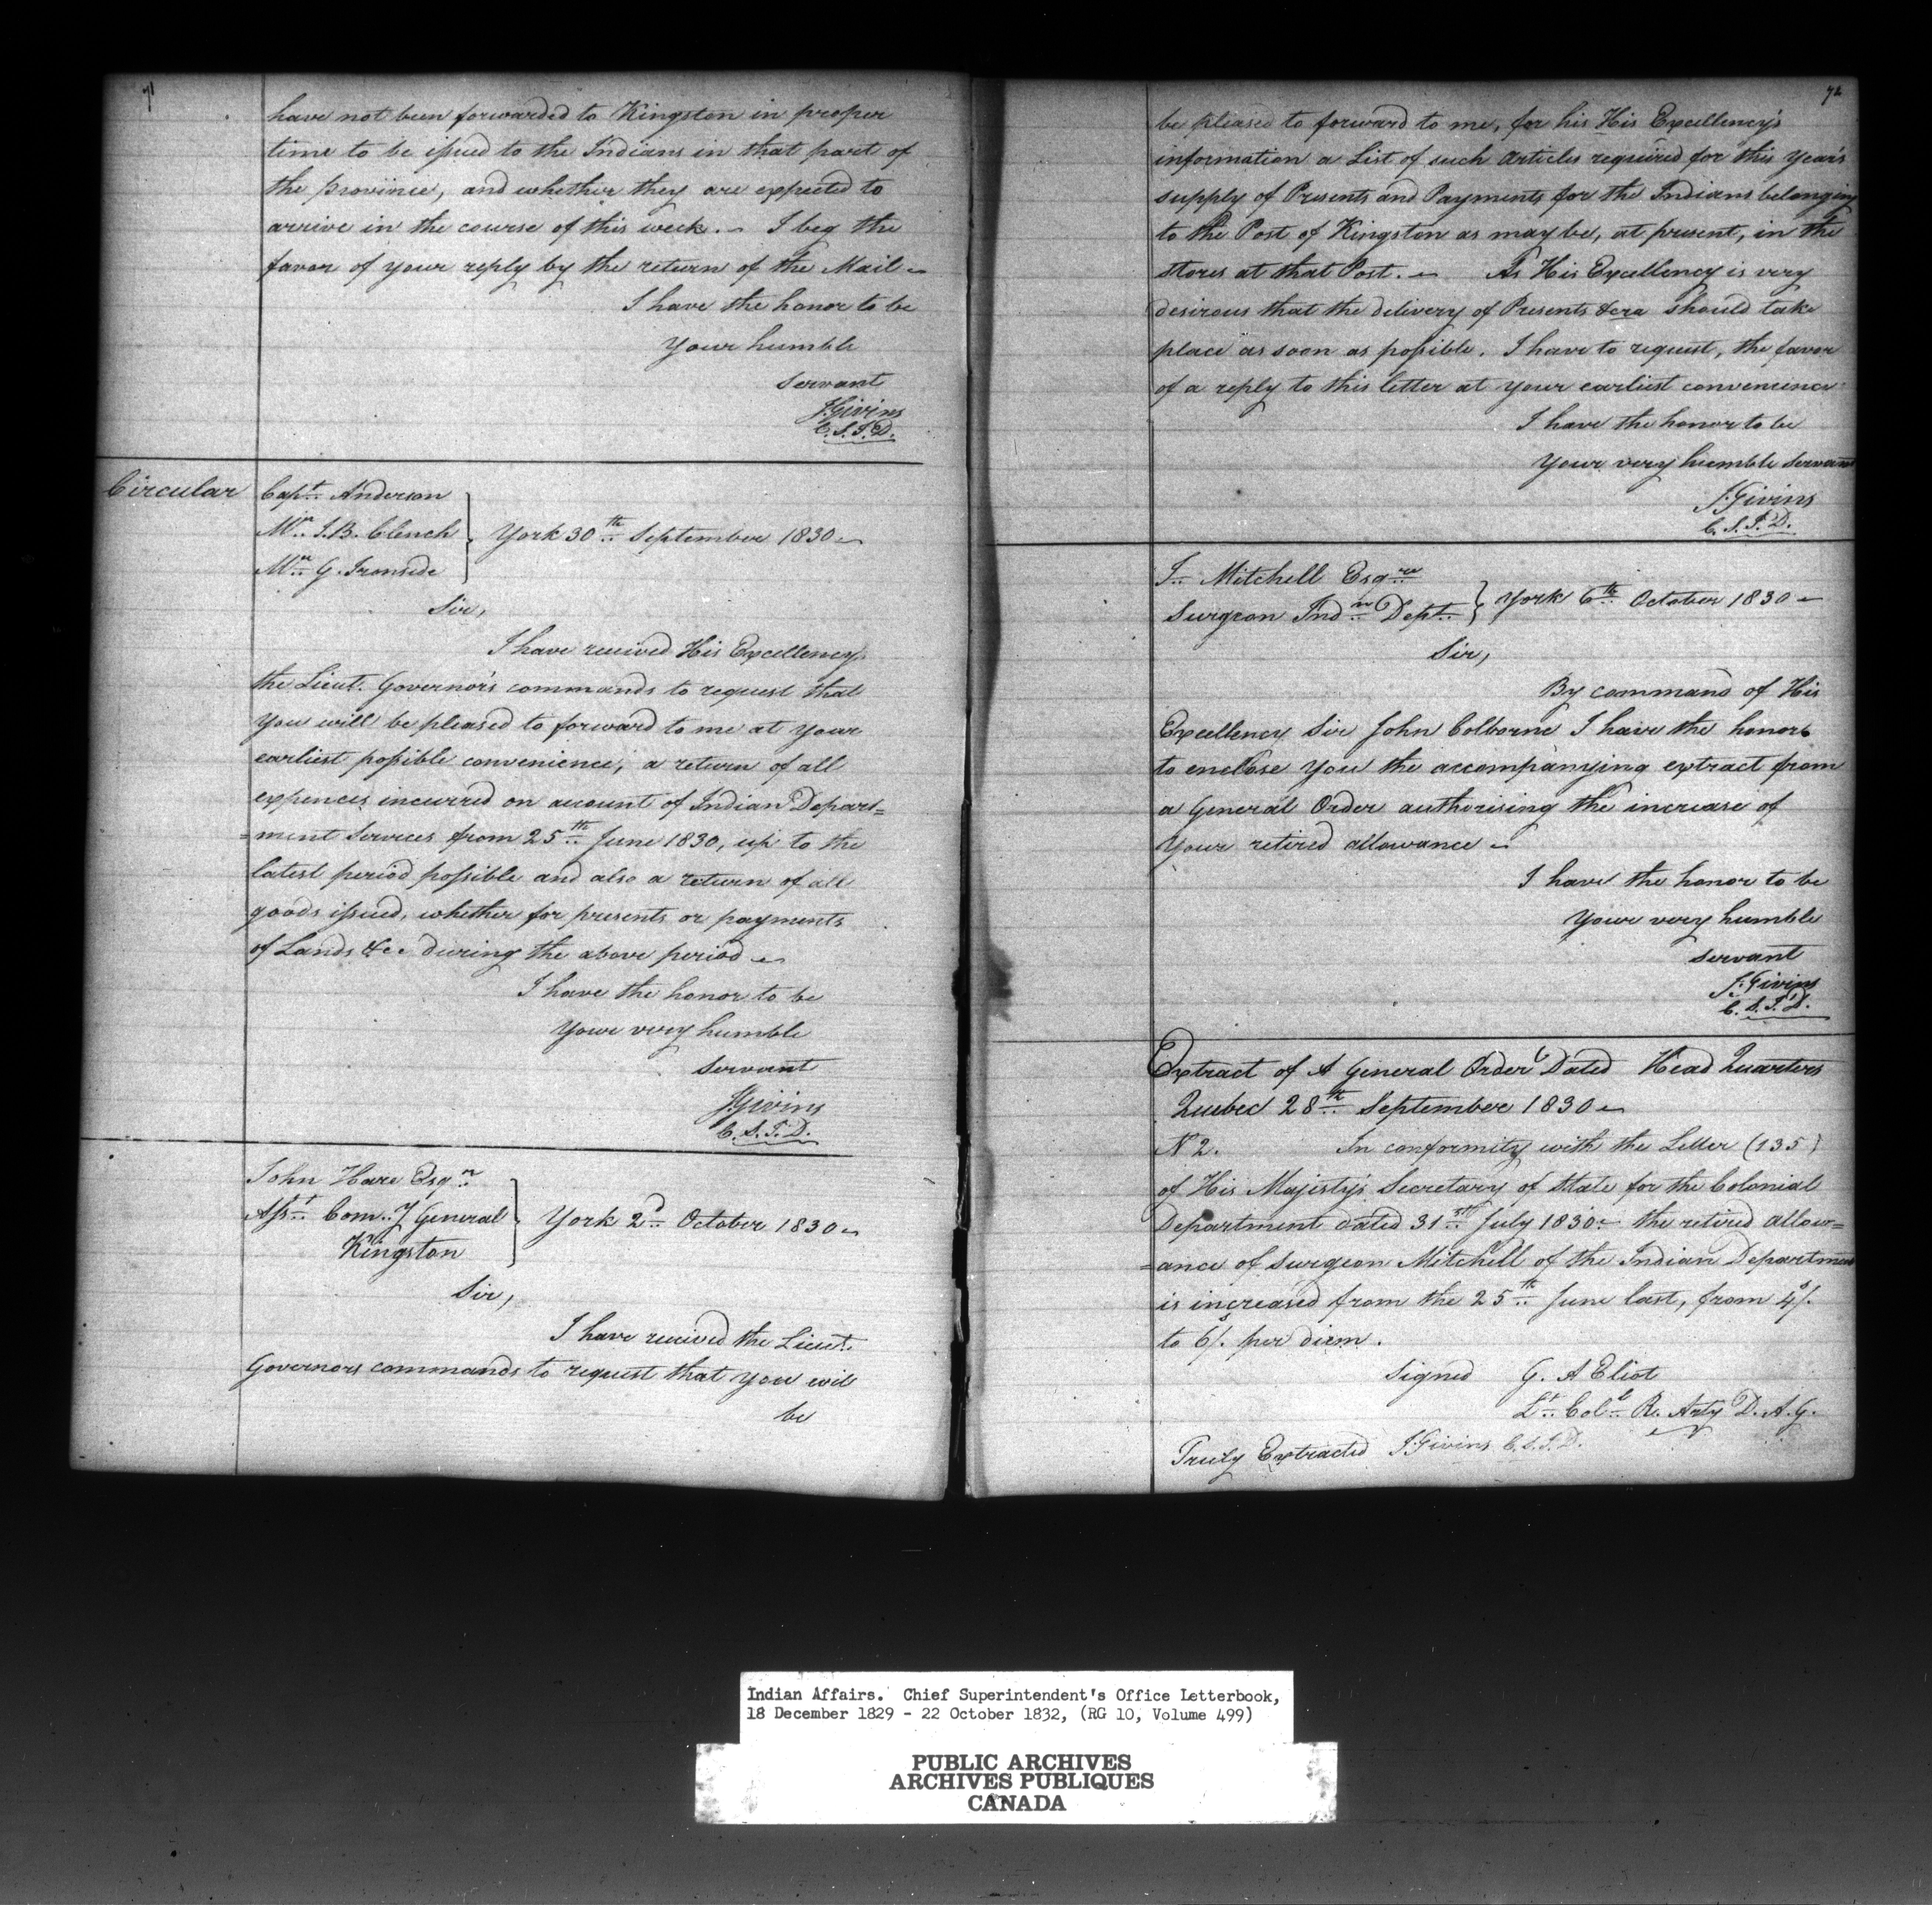 71
have not been forwarded to Kingston in proper
time to be issued to the Indians in that part of
the province, and whether they are expected to
arrive in the course of this week. I beg the
favor of your reply by the return of the Mail
I have the honor to be
Your humble
servant
J. Givins
C.S.I.D.
Circular
Capt. Anderson
Mr. J.B. Clench
Mr. G. Ironside
York 30th September 1830
Sir,
I have received His Excellency
the Lieut. Governor's commands to request that
you will be pleased to forward to me at your
earliest possible convenience, a return of all
expences incurred on account of Indian Depart=
=ment Services from 25th June 1830, up to the
latest period possible and also a return of all
goods issued, whether for presents or payments
of Lands &c. during the above period
I have the honor to be
Your very humble
servant
J Givins
C.S.I.D.
John Hare Esqr.
Asst. Com.y General
Kingston
York 2d October 1830
Sir,
I have received the Lieut.
Governors commands to request that you will
be
72
be pleased to forward to me, for his His Excellency's
information a List of such articles required for this year's
supply of Presents and Payments for the Indians belonging
to the Post of Kingston as may be, at present, in the
stores at that Post. As His Excellency is very
desirous that the delivery of Presents &cra should take
place as soon as possible. I have to request, the favor
of a reply to this letter at your earliest convenience
I have the honor to be
Your very humble servant
J. Givins
C.S.I.D.
Mitchell Esqre
Surgeon Indn Dept.
York 6th October 1830
Sir,
By command of His
Excellency Sir John Colborne I have the honor
to enclose you the accompanying extract from
a General Order authorising the increase of
your retired allowance
I have the honor to be
Your very humble
servant
J. Givins
C.S.I.D.
Extract of A General Order Dated Head Quarters
Quebec 28th September 1830
N 2. In conformity with the Letter (135)
of His Majesty's Secretary of State for the Colonial
Department dated 31st July 1830 the retired allow=
=ance of Surgeon Mitchell of the Indian Department
is increased from the 25th June last, from 4/.
to 6/. per diem.
Signed G. A Eliot
Lt. Coll. R. Arty D.A.G.
Truly Extracted J Givins C.S.I.D.
Indian Affairs. Chief Superintendent's Office Letterbook,
18 December 1829 - 22 October 1832, (RG 10, Volume 499)
PUBLIC ARCHIVES
ARCHIVES PUBLIQUES
CANADA